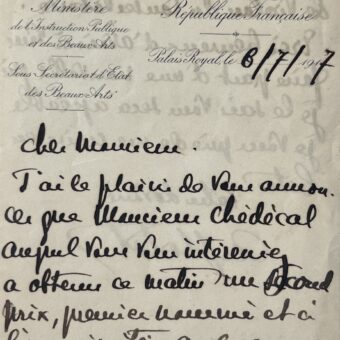 Ministère
de l'Instruction Publique
et des Beaux-Arts
Sous-Secrétariat d'Etat
des Beaux-Arts
République Française
Palais-Royal, le 6/7/1917
Cher Monsieur.
J'ai le plaisir de vous annon-
cer que Monsieur Chédécal
auquel vous vous intéressiez
a obtenu ce matin un second
prix, premier nommé et à